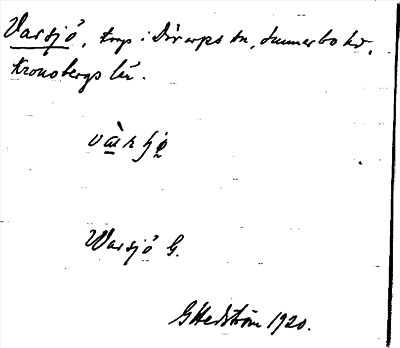 Varsjö, torp i Dörarps sn, Sunnerbo hd,
Kronobergs län.
Warsjö G.
G Hedström 1920.